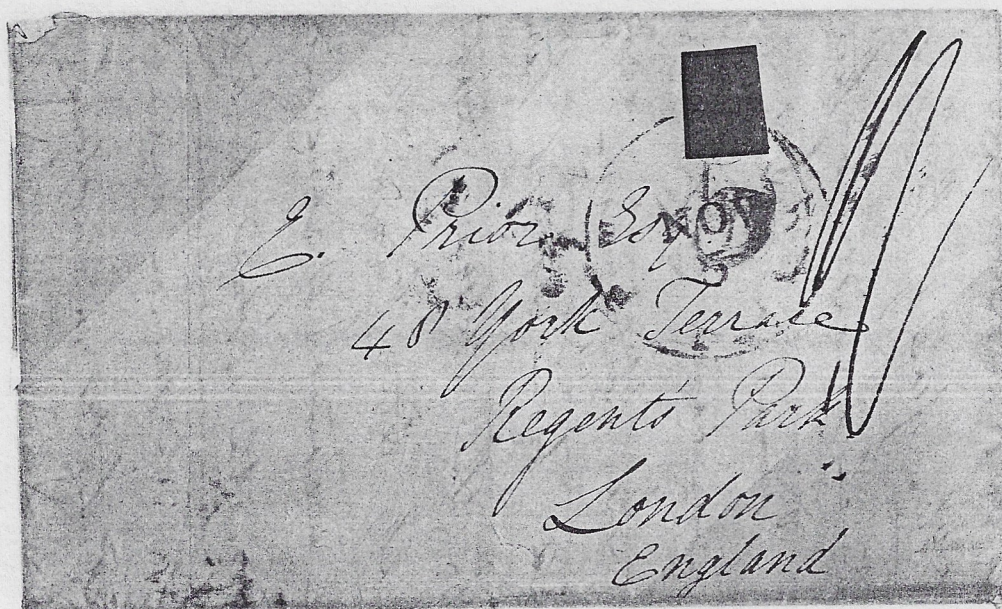 E. Prior Esq
48 York Terrace
Regents Park
London
England
NOV